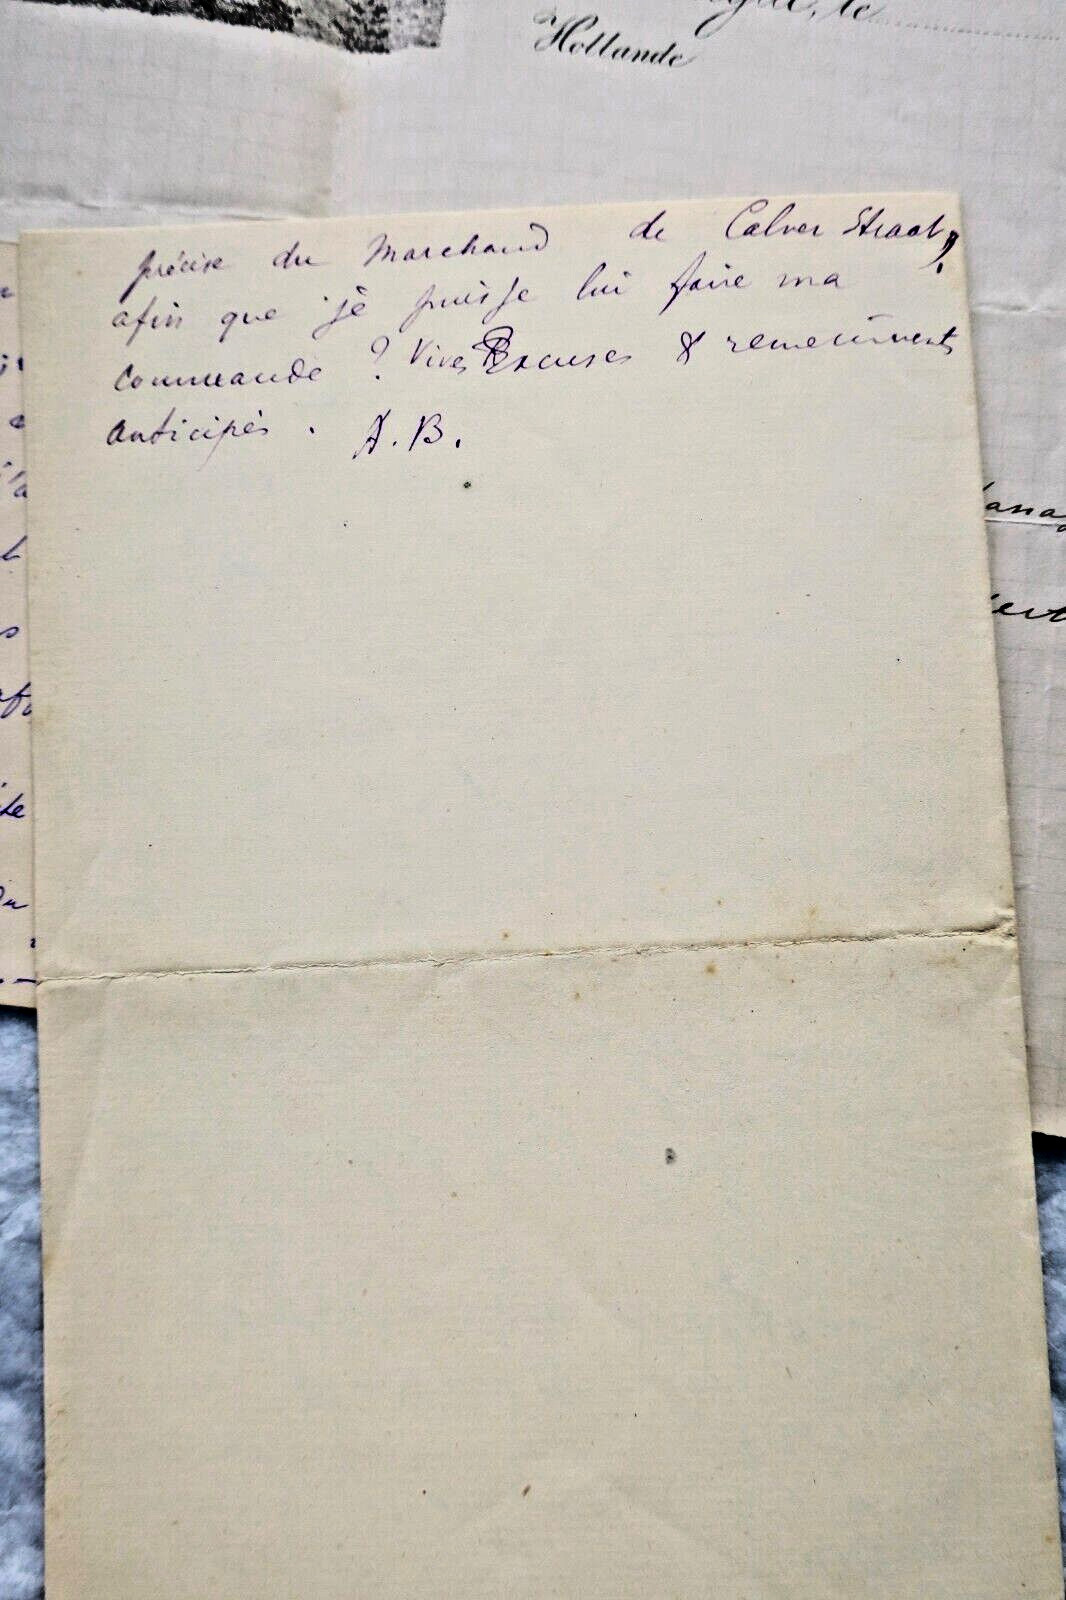 le
Hollande
précise du Marchand de Calver Straat,
afin que je puisse lui faire ma
commande ? Vives Excuses & remerciments
anticipés . A. B.